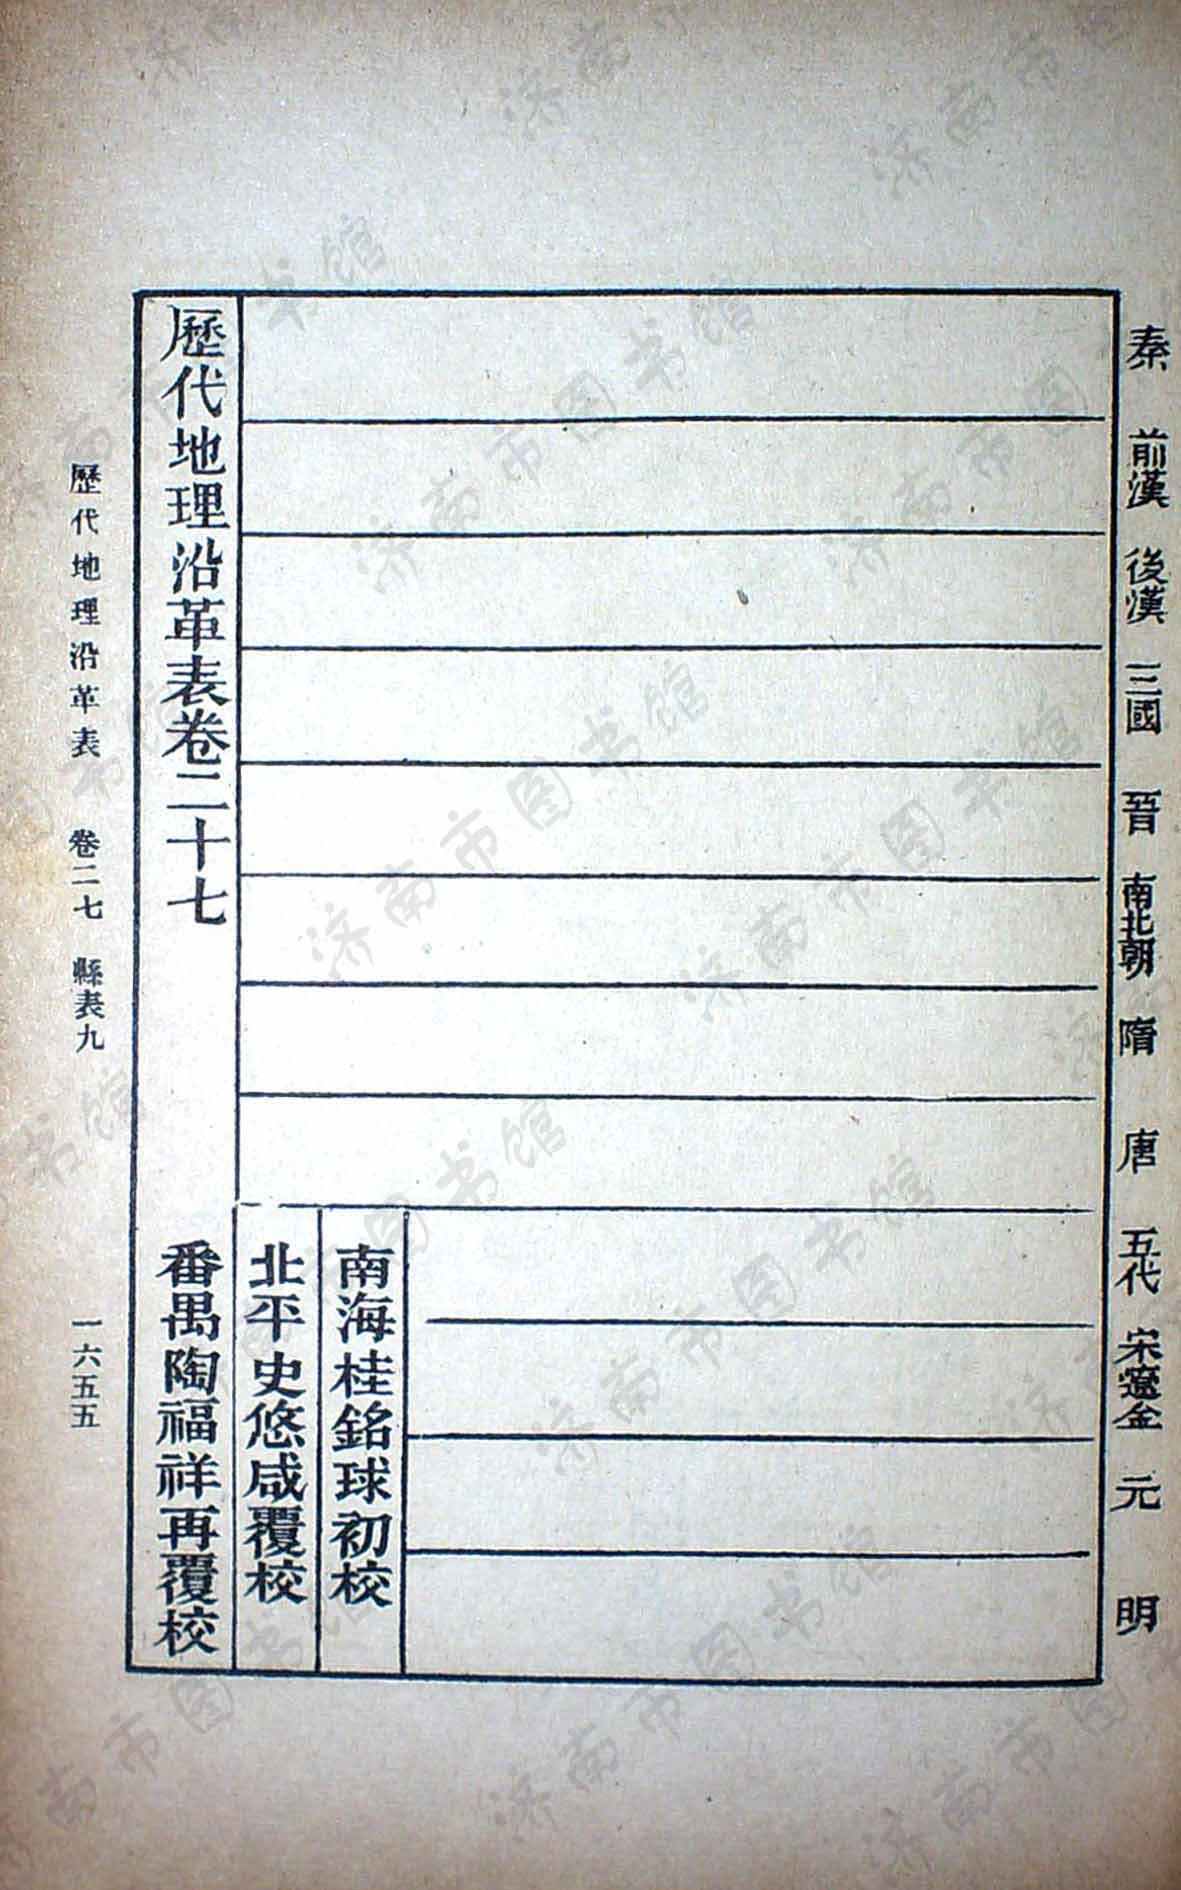 秦 前漢 後漢 三國 晉 南北朝 隋 唐 五代 宋遼金 元 明
南海桂銘球初校
北平史悠咸覆校
歷代地理沿革表卷二十七
番禺陶福祥再覆校
歷代地理沿革表 卷二七 縣表九 一六五五
济南市图书馆